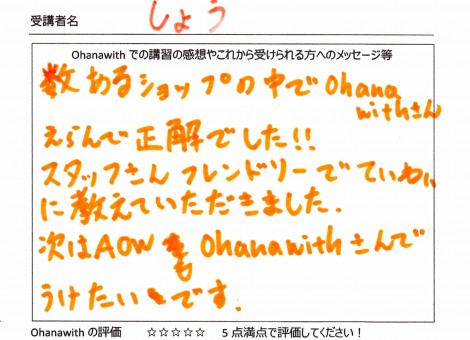 受講者名 しょう
Ohanawith での講習の感想やこれから受けられる方へのメッセージ等
数あるショップの中でOhana
withさん
えらんで正解でした!!
スタッフさんフレンドリーでていねい
に教えていただきました.
次はAOWも Ohanawithさんで
うけたいです.
Ohanawith の評価 ☆☆☆☆☆ 5 点満点で評価してください!